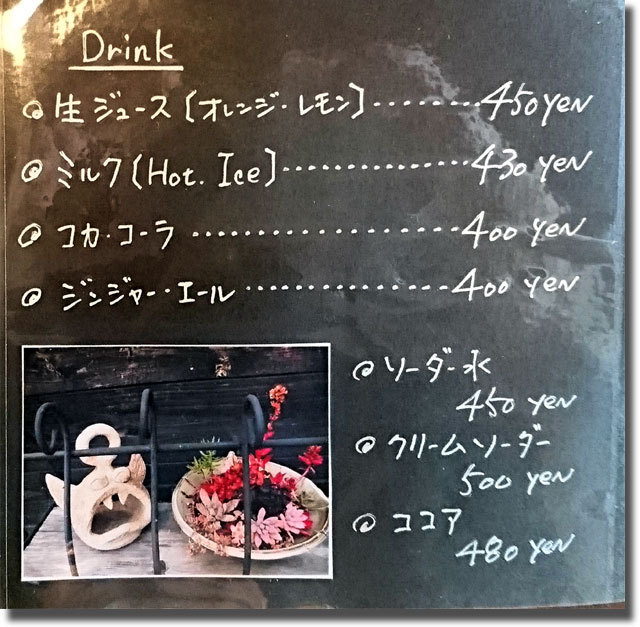 Drink
◎ 生ジュース〔オレンジ・レモン〕・・・・・・・・450 YEN
◎ ミルク〔Hot. Ice〕・・・・・・・・・・・・・430 YEN
◎ コカ・コーラ ・・・・・・・・・・・・・・・・・・400 YEN
◎ ジンジャー・エール ・・・・・・・・・・・・・・400 YEN
◎ ソーダー水
450 YEN
◎ クリームソーダー
500 YEN
◎ ココア
480 YEN